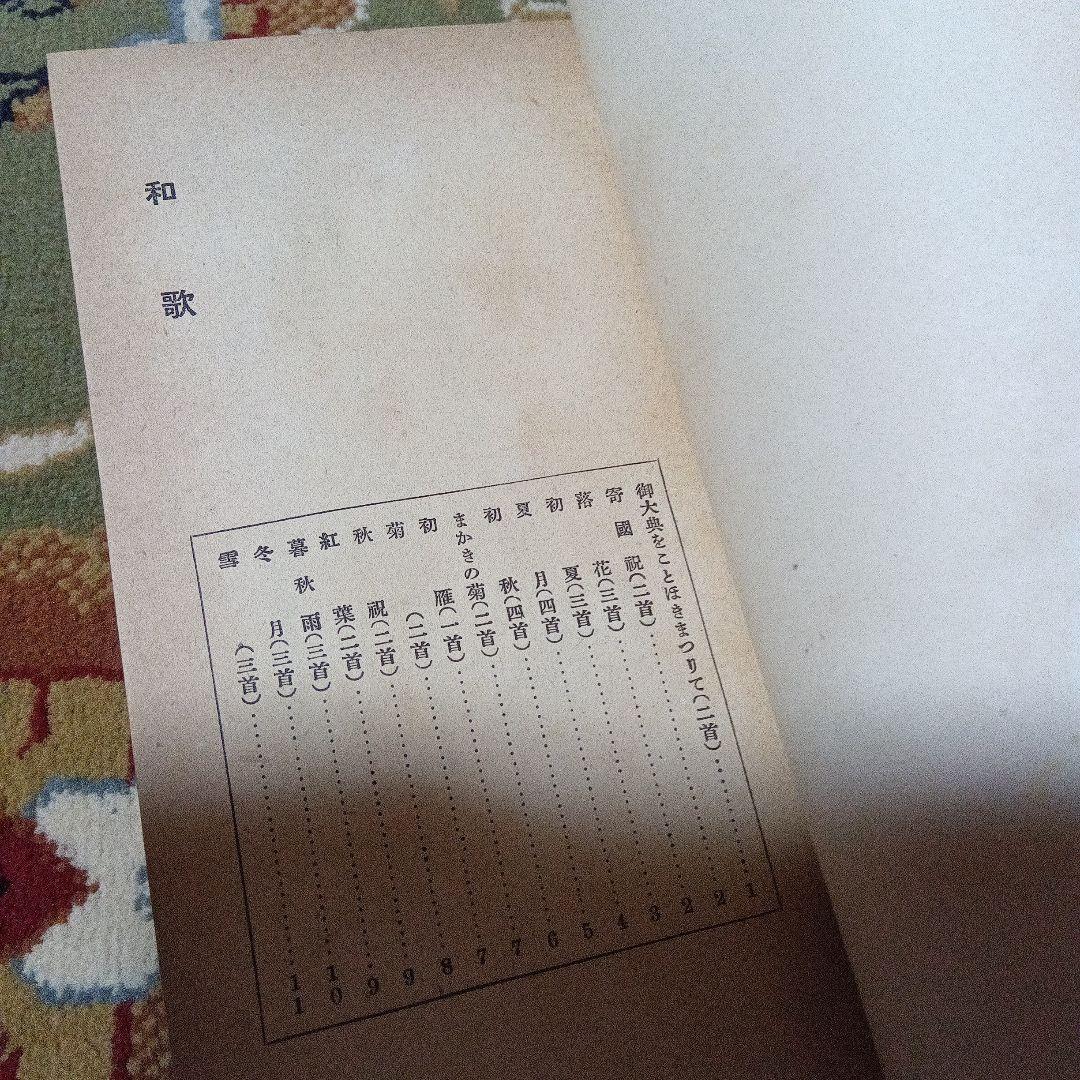 和歌
御大典をことほきまつりて(二首)……1
寄國祝(二首)……2
落花(三首)……2
初夏(三首)……3
夏月(四首)……4
初秋(四首)……5
まかきの菊(二首)……6
初雁(一首)……7
菊(二首)……7
秋祝(二首)……8
紅葉(二首)……9
暮秋雨(三首)……9
冬月(三首)……10
雪(三首)……11